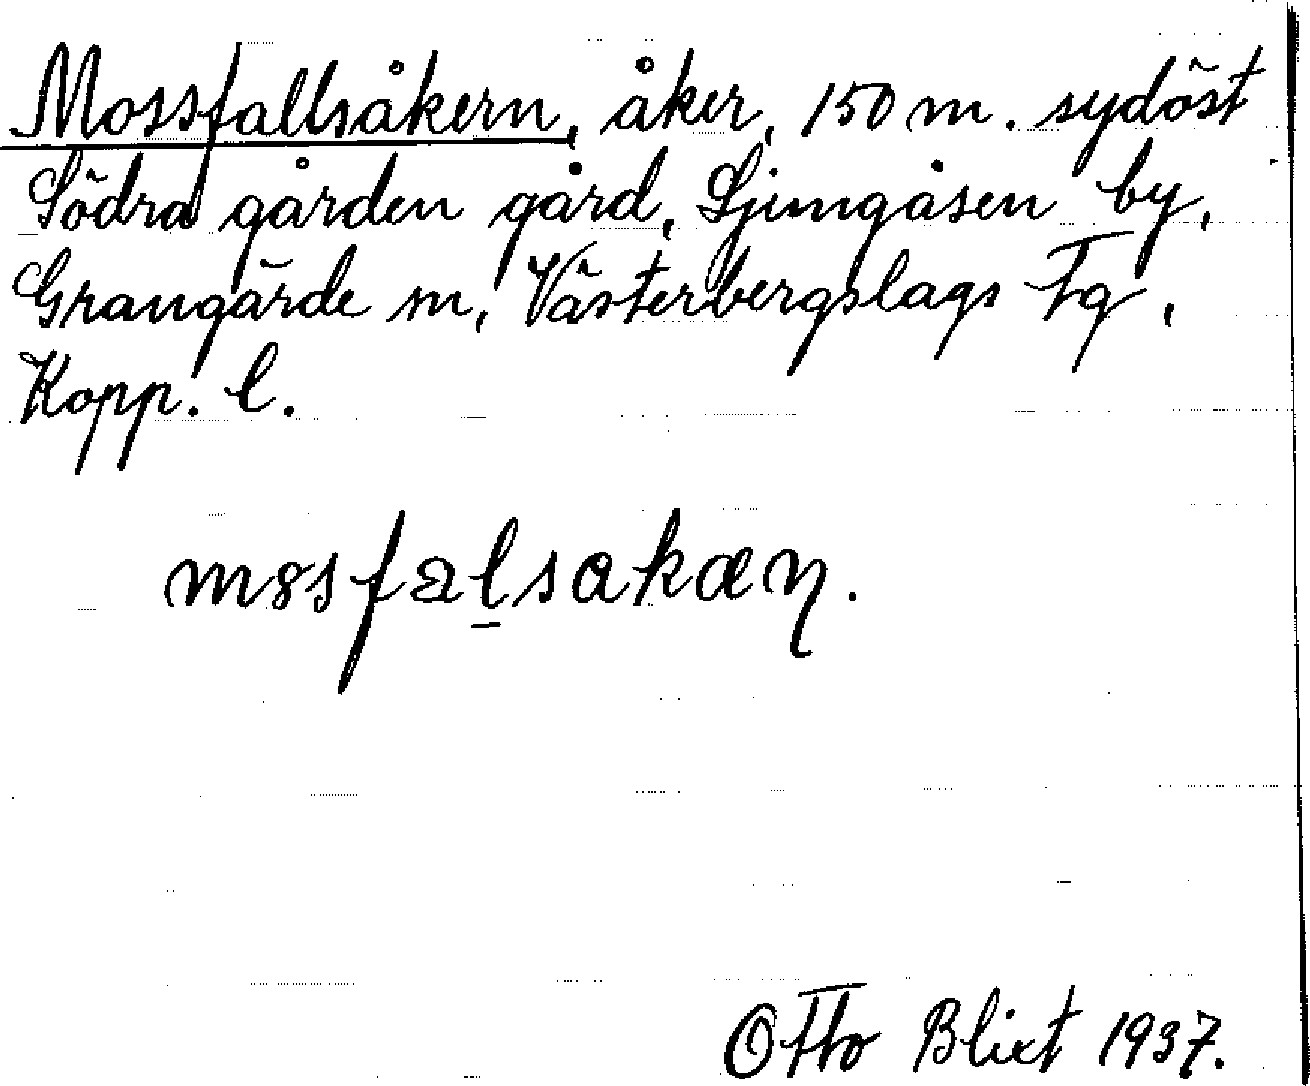 Mossfallsåkern, åker, 150 m. sydöst
Södra gården gård, Ljungåsen by,
Grangärde sn, Västerbergslags Fg,
Kopp. l.
mosfalsakæɳ.
Otto Blixt 1937.